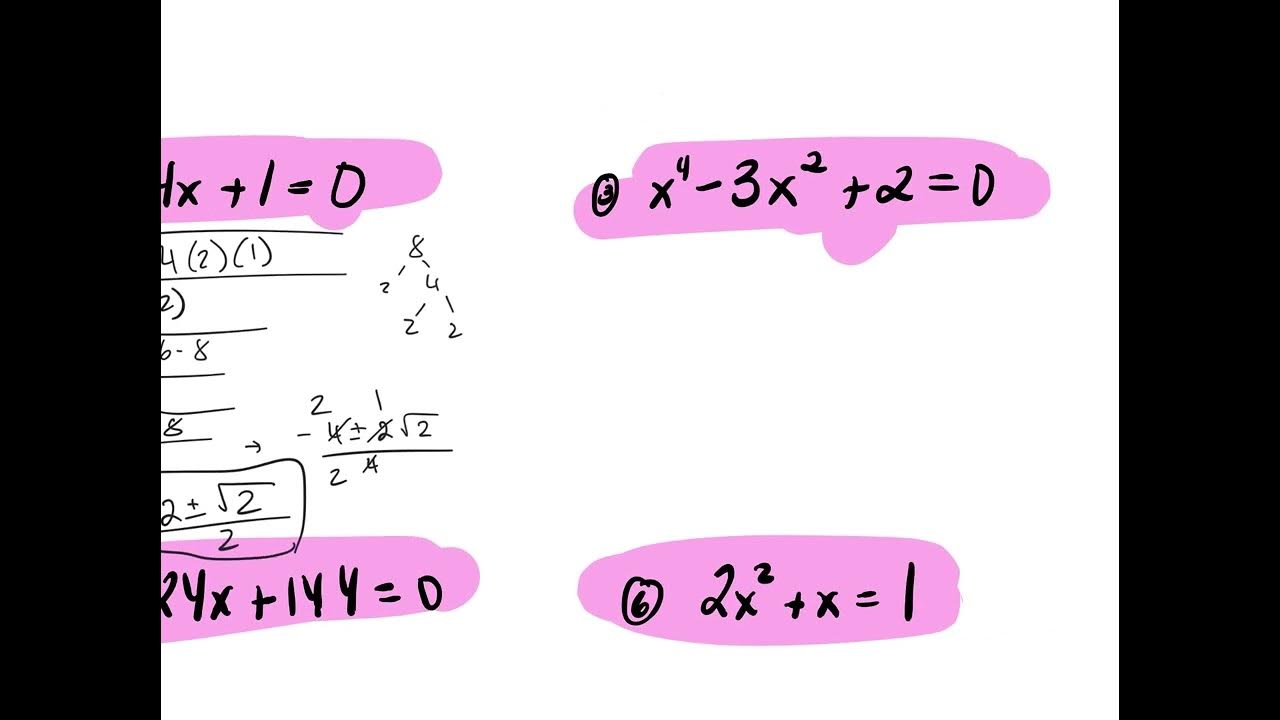 4x + 1 = 0
4(2)(1)
2)
6 - 8
8
→
2 ± √2
2
8
2 4
2 2
2 1
- 4 ± 2 √2
2 4
③ x⁴ - 3x² + 2 = 0
24x + 144 = 0
⑥ 2x² + x = 1